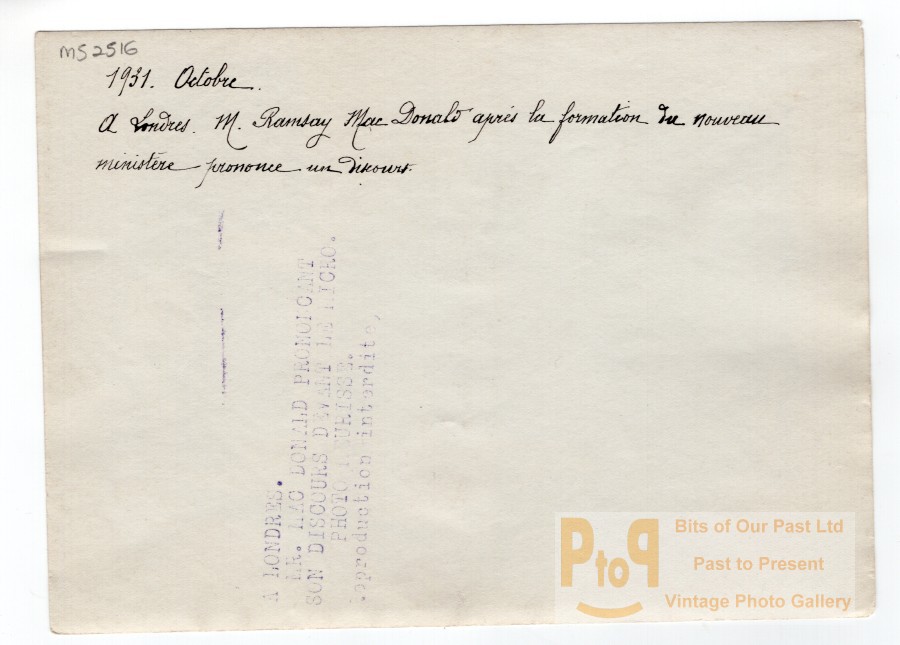 MS2516
1931. Octobre.
A Londres. M. Ramsay Mac Donald après la formation du nouveau
ministère prononce un discours.
A LONDRES.
MR. MAC DONALD PRONONCANT
SON DISCOURS DEVANT LE MICRO.
PHOTO MEURISSE.
eproduction interdite,
PtoP
Bits of Our Past Ltd
Past to Present
Vintage Photo Gallery